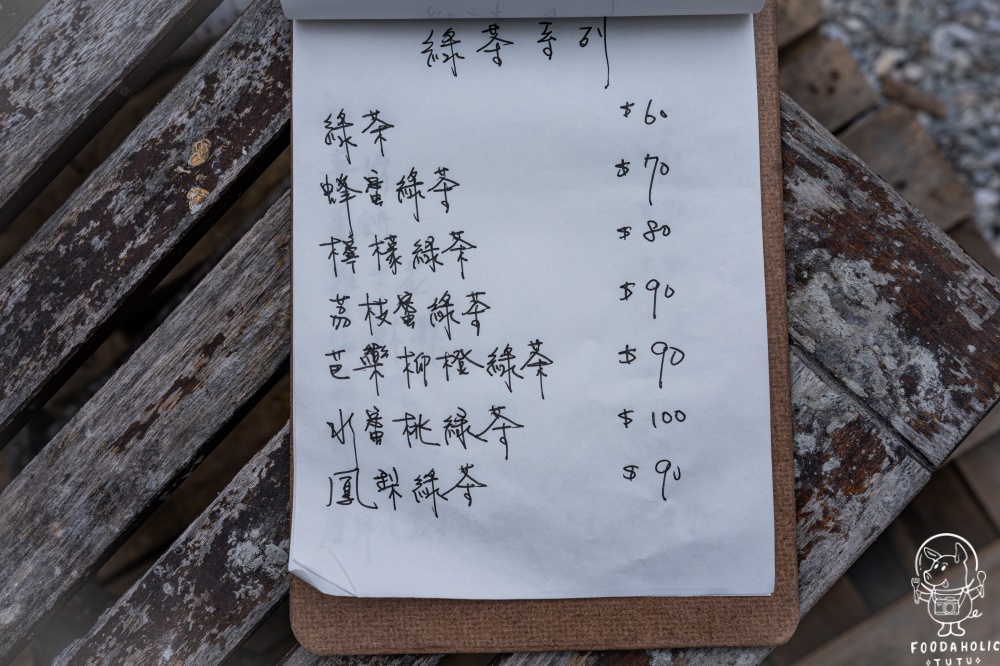 綠茶系列
綠茶 $60
蜂蜜綠茶 $70
檸檬綠茶 $80
荔枝蜜綠茶 $90
芭樂柳橙綠茶 $90
水蜜桃綠茶 $100
鳳梨綠茶 $90
FOODAHOLIC
TUTU